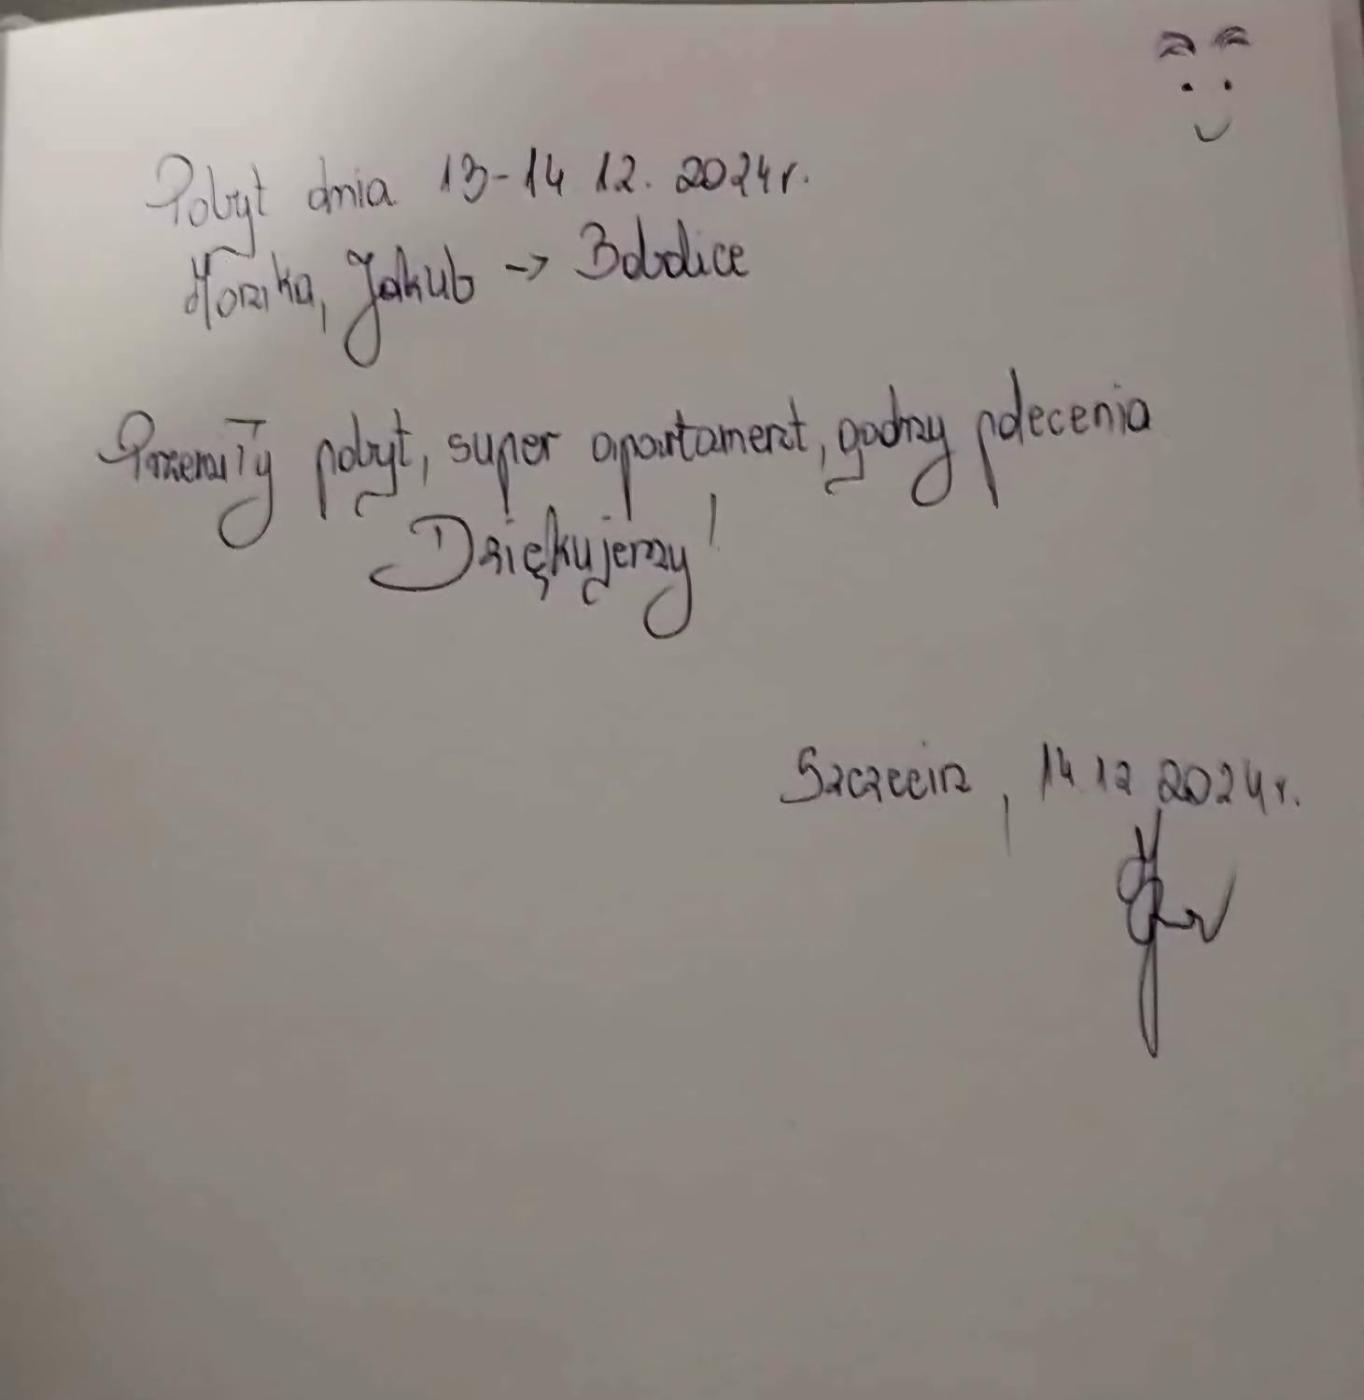 Pobyt dnia 13-14 12. 2024r.
Monika, Jakub -> Bobolice
Przemiły pobyt, super apartament, godny polecenia
Dziękujemy!
Szczecin, 14.12 2024r.